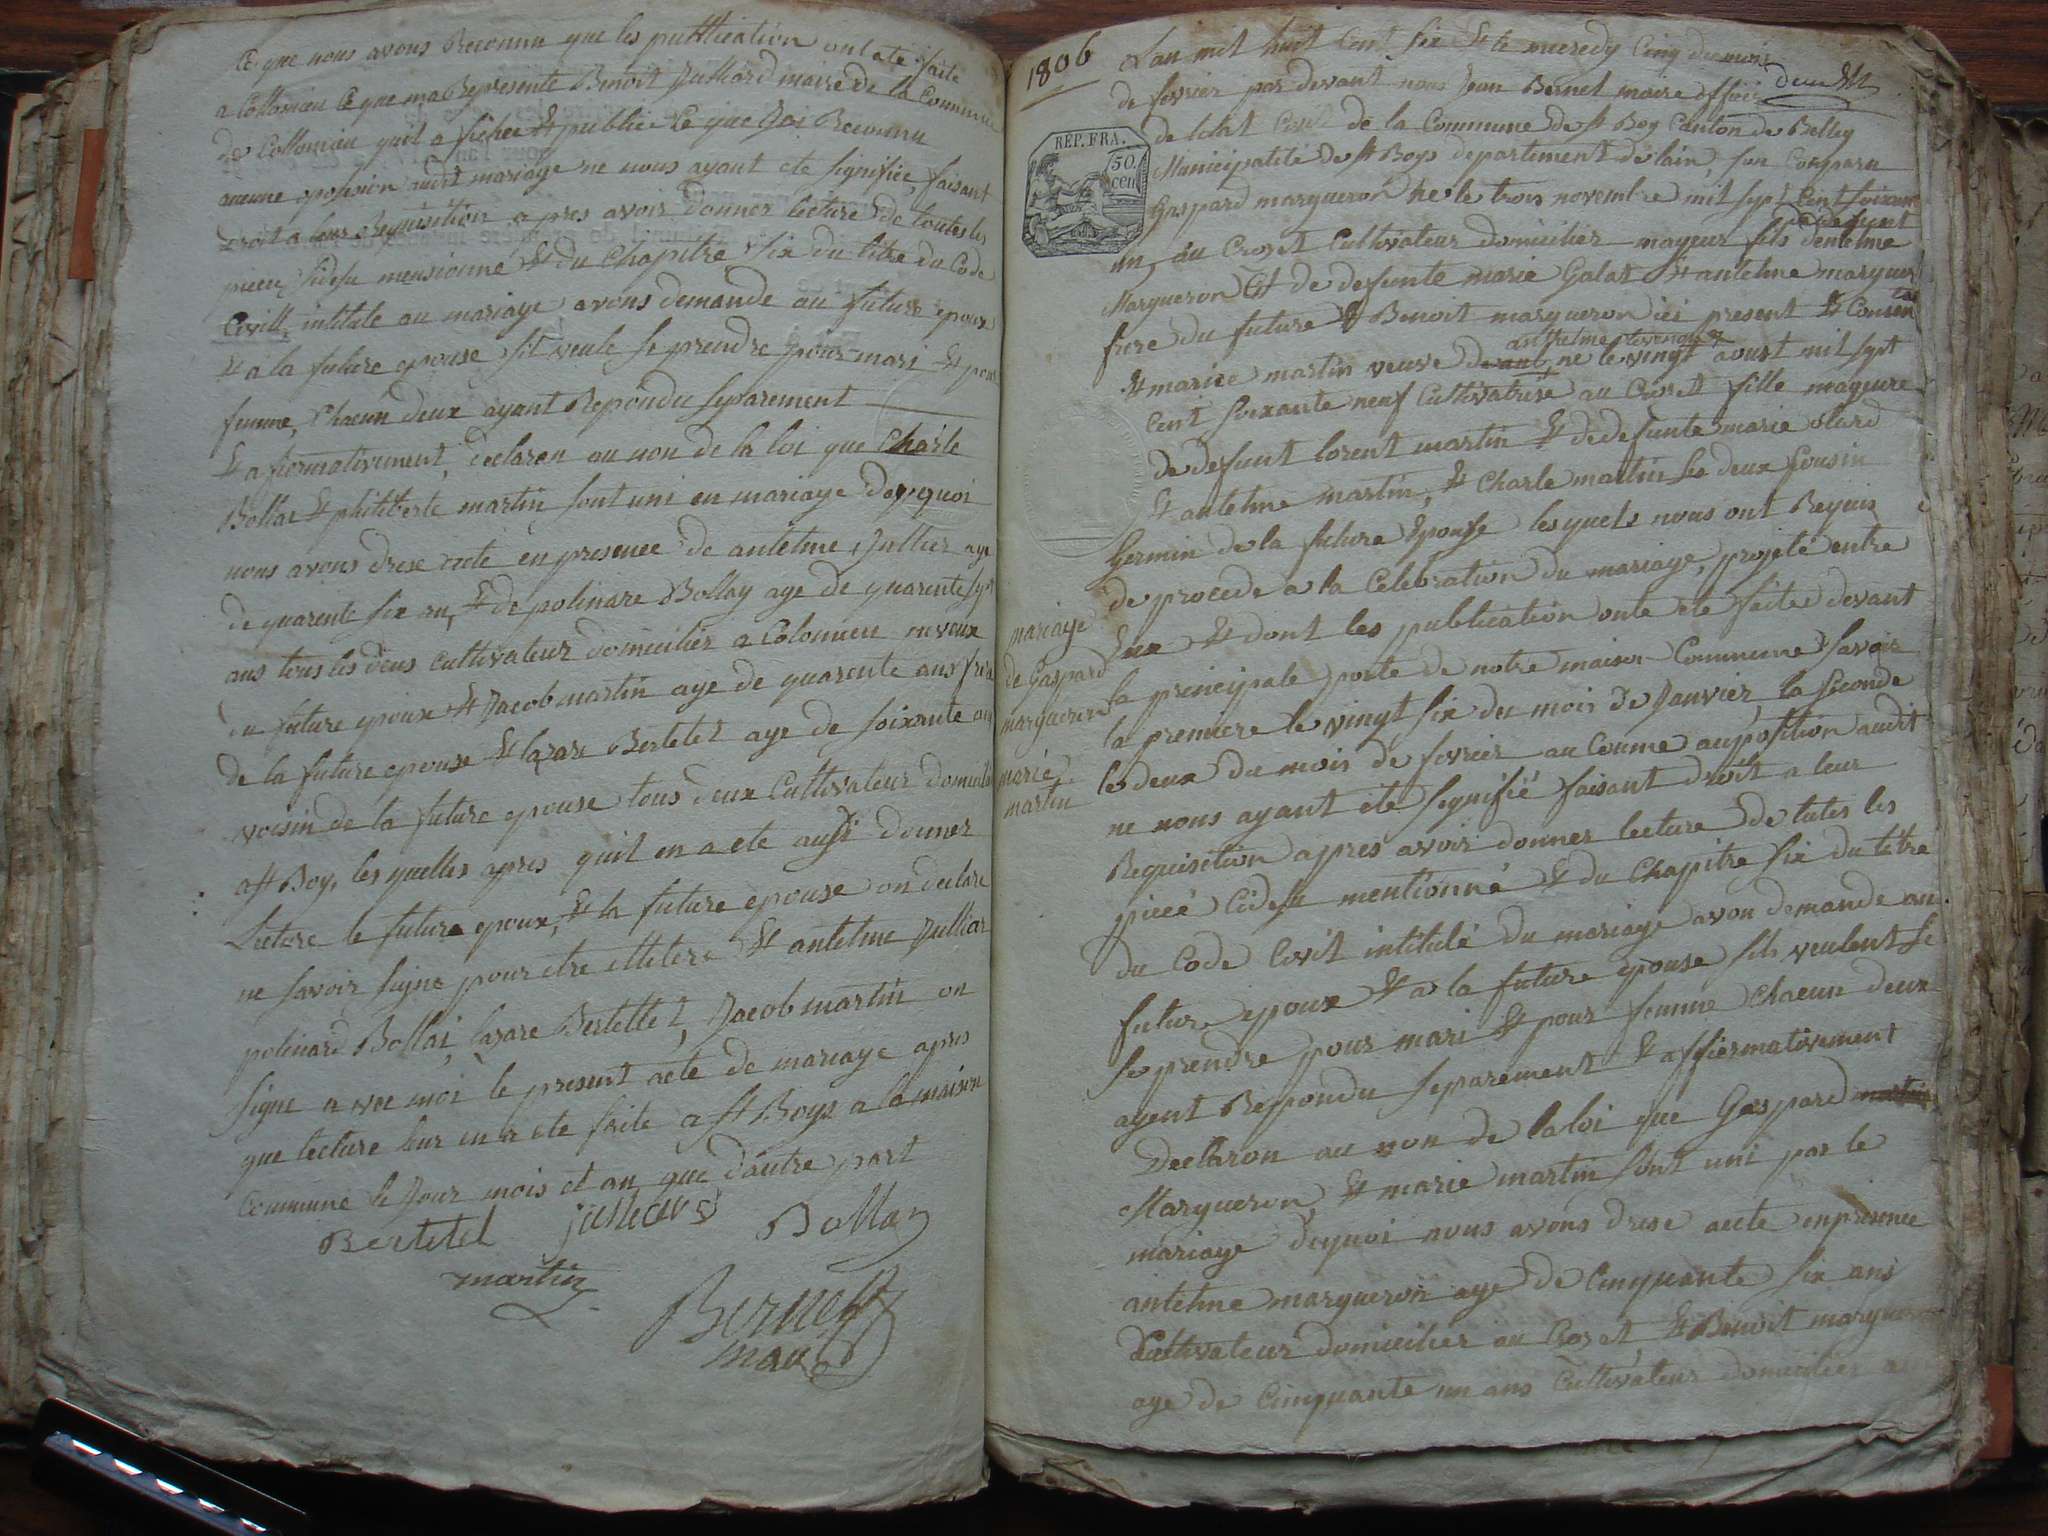 Ce que nous avons Reconnu que les publlication ont ate faite
a Collomieu Ce que ma Represente Benoit Julliard maire de la Commune
de Collomieu quil a fichee Et publie Ce que Jai Reconnu
aucune oposision audit mariage ne nous ayant ete signifiee, faisant
Droit a leur Requisition apres avoir donner lecture de toutes les
piecez sidesu mensionné Et du Chapitre six du titre du Code
Civill, intitule au mariage avons demande au future epoux
Et a la future epouse sil veule se prendre pour mari Et pour
femme, Chacun deux ayant Repondu separement
Et afirmativement, declaron au non de la loi que Charle
Bollai Et philiberte martin sont uni en mariage de quoi
nous avons drese acte en presence de antelme Jullier age
de quarente six an, Et de polinare Bollay age de quarente sept
ans tous les deus cultivateur domicilier a Colomieu
du future epoux Et Jacob martin age de quarente ans frere
de la future epouse Et lazare Bertetet age de soixante ans
voisin de la future epouse tous deux Cultivateur domicilie
a St Boy, les quelles apres quil en a ete ausi donner
Lecture le future epoux, Et la future epouse on declare
ne savoir signe pour etre illetere Et antelme Julliar
polinard Bollai, lazare Bertettet, Jacob martin on
signe avec moi le present acte de mariage apres
que lecture leur en a ete faite a St Boys a la maison
Commune le Jour mois et an que d'autre part
Bertetet Bollay
martin
Bernet
maire
1806
Lan mil huit Cent six Et le mecredy Cinq du mois
de fevrier par devant nous Jean Bernet maire officier
de letat Civil de la Commune de St Boy Canton de Belley
RÉP. FRA.
50.
cen.
Municipalité de St Boys departement de lain, son Comparu
Gaspard margueron ne le trois novembre mil sept Cent soixante
un, au Crozet Cultivateur domicilier mayeur fils
Margueron Et de defunte marie Galat Et antelme margueron
frere du future Et Benoit margueron ici present Et Consentant
Et mariee martin veuve ne le vingt aoust mil sept
Cent soixante neuf Cultivatrise au Crozet fille mayeure
de defunt lorent martin Et de defunte marie olard
Et antelme martin, Et Charle martin les deux Cousin
Germin de la future Epouse lesquels nous ont Requis
de procede a la Celebration du mariage, projeté entre
mariage
de Gaspard
margueron
marie
martin
Eux Et dont les publication onte ete faitee devant
la principale porte de notre maison Commune savoir
la premiere le vingt six du mois de Janvier, la seconde
le deux du mois de fevrier au Coume auposition audit
ne nous ayant ete segnifié faisant droit a leur
Requisition apres avoir donner lecture de tutes les
piece Cidesu mentionné Et du Chapitre six du titre
du Code Civil intitulé du mariage avon demande au
future epoux Et a la future epouse sils veulent se
se prendre pour mari Et pour femme Chacun deux
ayent Respondu separement Et affiermativement
Declaron au non de la loi que Gaspard
Margueron, Et marie martin sont uni par le
mariage dequoi nous avons drese acte enpresence
antelme margueron age de Cinquante six ans
Cultivateur domicilier au Crozet, Et Benoit margueron
age de Cinquante un ans Cultivateur domicilier au